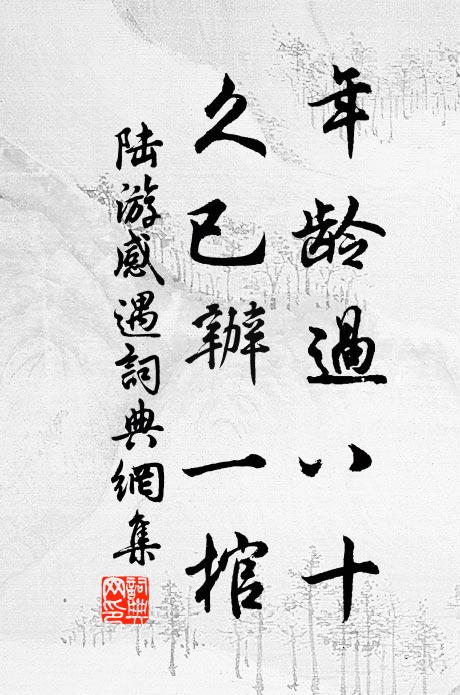 年龄過八十
久已辦一棺
陆游感遇詞典網集
詞典
网印